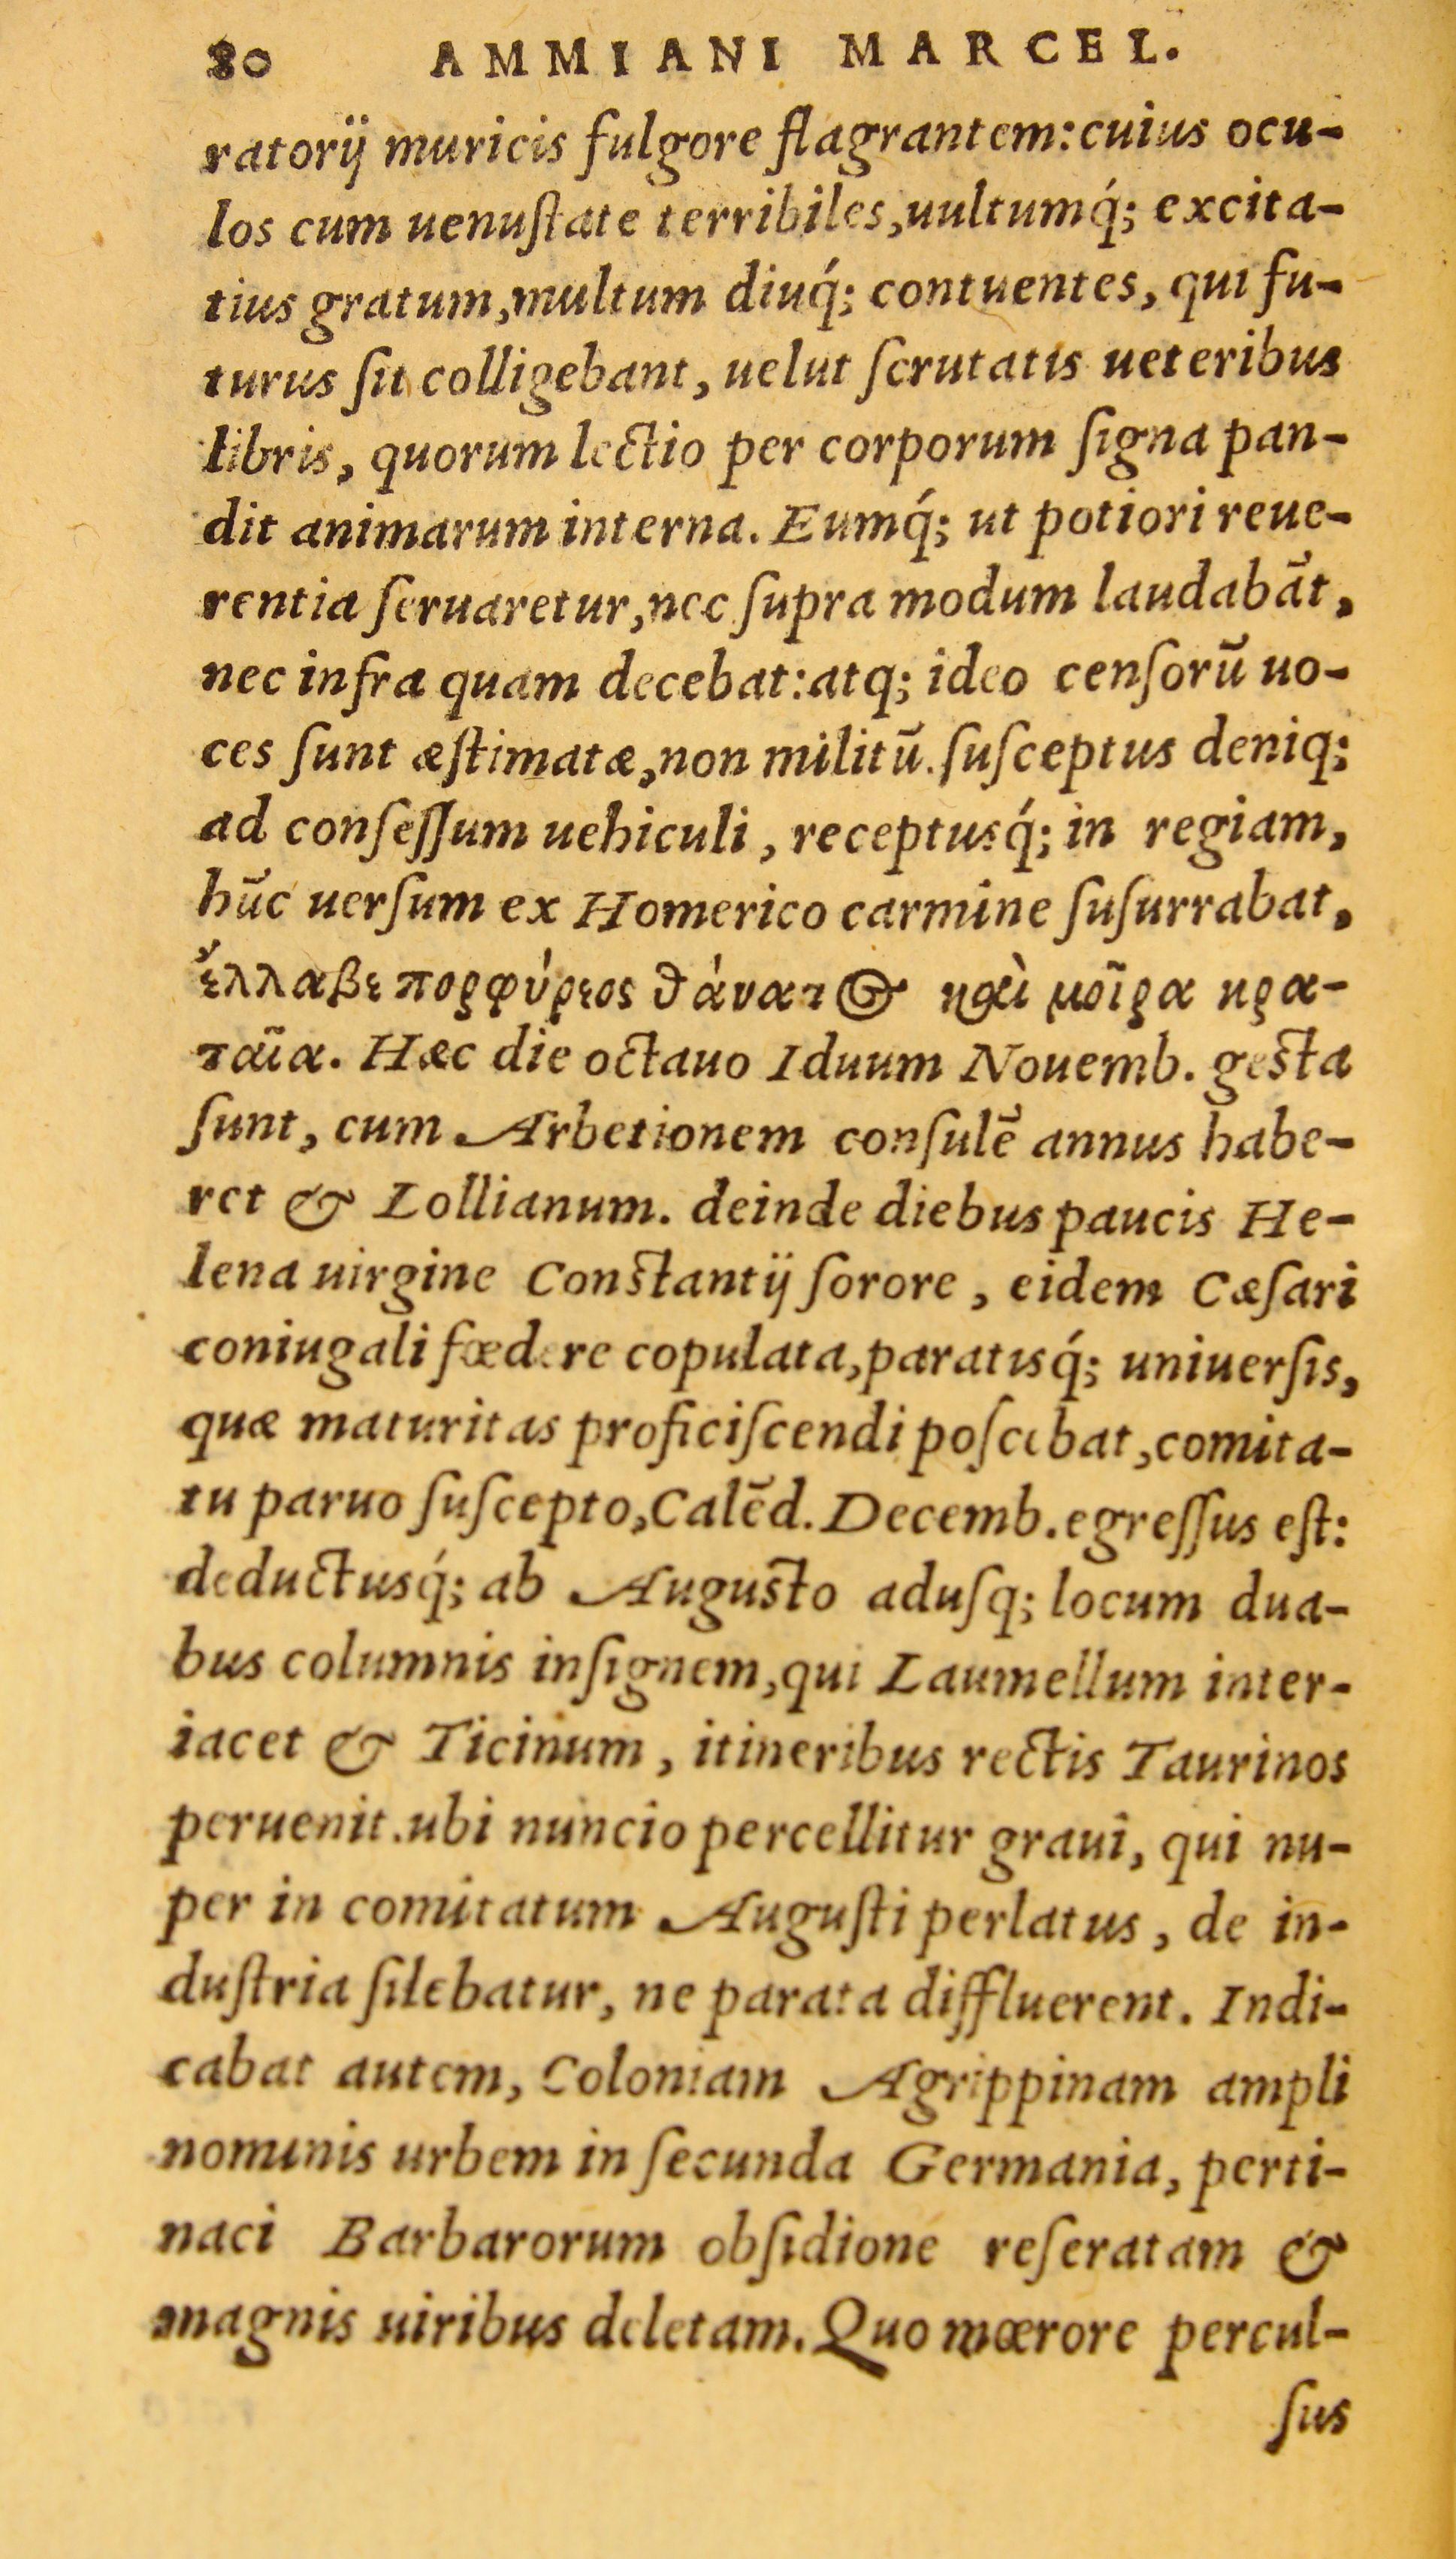 80 AMMIANI MARCEL.
ratorij muricis fulgore flagrantem:cuius ocu-
los cum uenuſtate terribiles,uultumq́; excita-
tius gratum,multum diuq́; contuentes, qui fu-
turus ſit colligebant, uelut ſcrutatis ueteribus
libris, quorum lectio per corporum ſigna pan-
dit animarum interna. Eumq́; ut potiori reue-
rentia ſeruaretur,nec ſupra modum laudabāt,
nec infra quam decebat:atq; ideo cenſorū uo-
ces ſunt æſtimatæ,non militū.ſuſceptus deniq;
ad conſeſſum uehiculi, receptusq́; in regiam,
hūc uerſum ex Homerico carmine ſuſurrabat,
ἔλλαβε πορφύρεος θάνατος καὶ μοῖρα κρα-
ταῖα. Hæc die octauo Iduum Nouemb. geſta
ſunt, cum Arbetionem conſulē annus habe-
ret & Lollianum. deinde diebus paucis He-
lena uirgine Conſtantij ſorore, eidem Cæſari
coniugali fœdere copulata,paratisq́; uniuerſis,
quæ maturitas proficiſcendi poſcebat,comita-
tu paruo ſuſcepto,Calēd.Decemb.egreſſus eſt:
deductusq́; ab Auguſto aduſq; locum dua-
bus columnis inſignem,qui Laumellum inter-
iacet & Ticinum, itineribus rectis Taurinos
peruenit.ubi nuncio percellitur graui, qui nu-
per in comitatum Auguſti perlatus, de in-
duſtria ſilebatur, ne parata diffluerent. Indi-
cabat autem, Coloniam Agrippinam ampli
nominis urbem in ſecunda Germania, perti-
naci Barbarorum obſidione reſeratam &
magnis uiribus deletam. Quo mœrore percul-
ſus